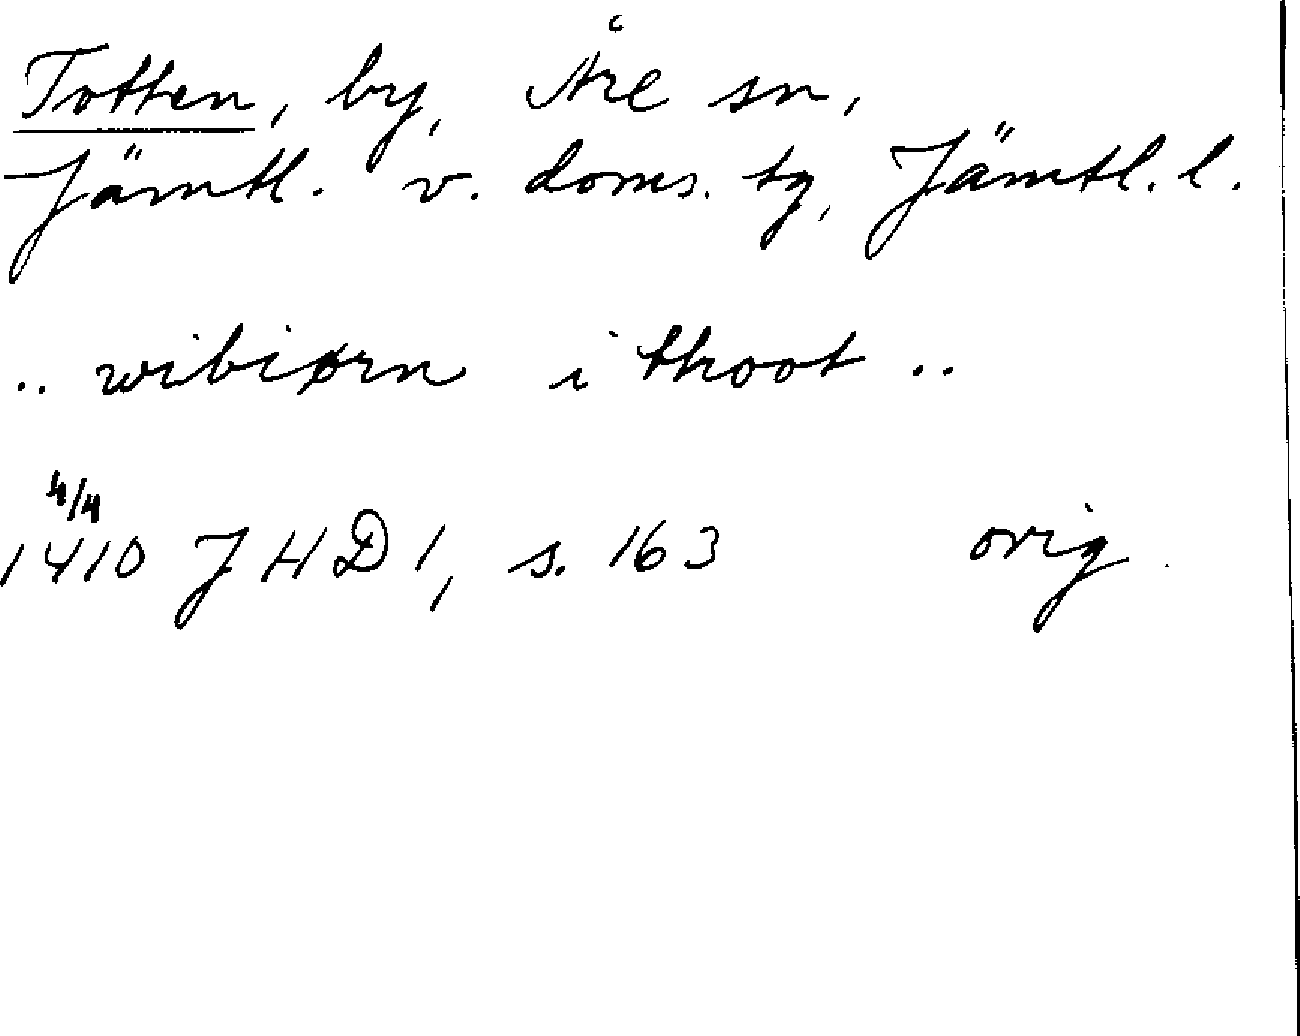 Totten, by, Åre sn,
Jämtl. v. doms. tg, Jämtl. l.
.. wibiørn i thoot ..
4/4
1410 JHD 1, s. 163 orig.